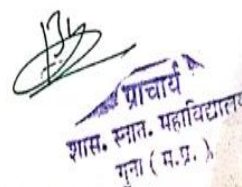 प्राचार्य
शास. स्नात. महाविद्यालय
गुना ( म.प्र. )